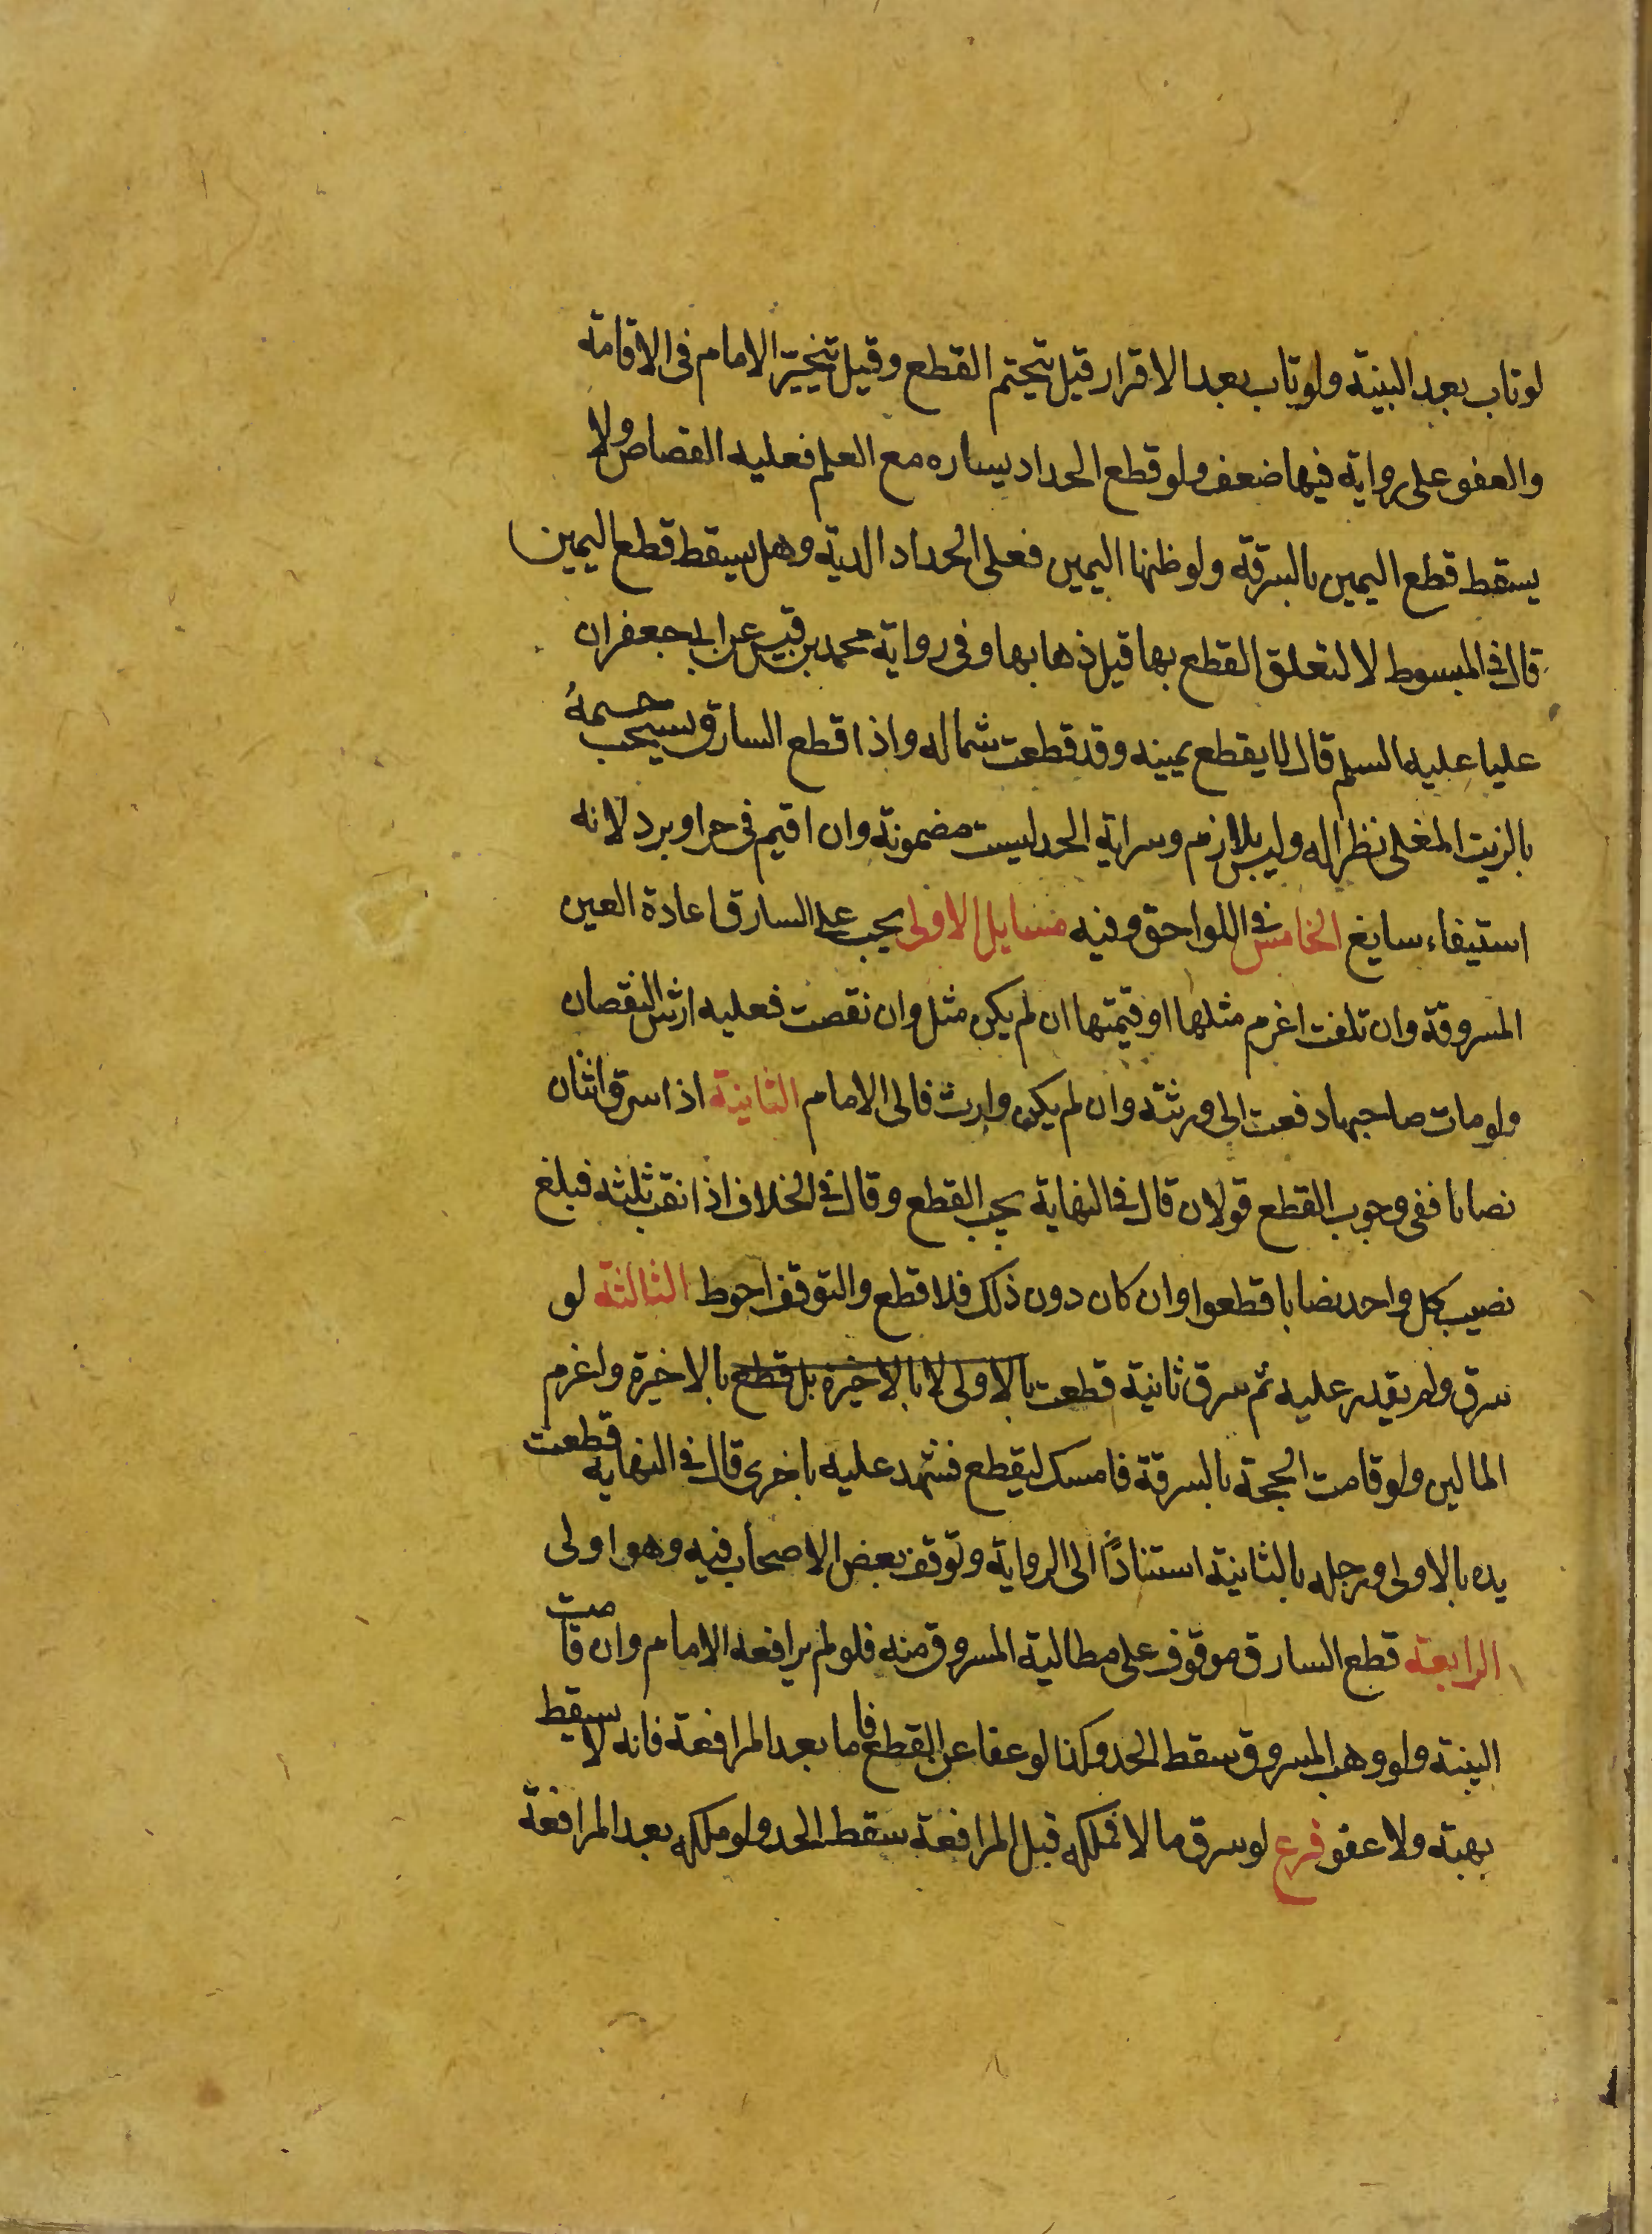 لو تاب بعد البينة ولو تاب بعد الاقرار قيل يتحتم القطع وقيل يتخير الامام فى الاقامة
والعفو على رواية فيها ضعف ولو قطع الحداد يساره مع العلم فعليه القصاص ولا
يسقط قطع اليمين بالسرقة ولو ظنها اليمين فعلى الحداد الدية وهل يسقط قطع اليمين
قال فى المبسوط لا لتعلق القطع بها قبل ذهابها وفى رواية محمد بن قيس عن ابى جعفر ان
عليا عليه السلم قال لا يقطع يمينه وقد قطعت شماله واذا قطع السارق يستحب حسمهُ
بالزيت المغلى نظرا له وليس بلازم وسراية الحد ليست مضمونة وان اقيم فى حر او برد لانه
استيفاء سايغ الخامس فى اللواحق وفيه مسايل الاولى يجب على السارق اعادة العين
المسروقة وان تلفت اغرم مثلها او قيمتها ان لم يكن مثل وان نقصت فعليه ارش النقصان
ولو مات صاحبها دفعت الى ورثته وان لم يكن وارث فالى الامام الثانية اذا سرق اثنان
نصابا ففى وجوب القطع قولان قال فى النهاية يجب القطع وقال فى الخلاف اذا نقب ثلثه فبلغ
نصيب كل واحد نصابا قطعوا وان كان دون ذلك فلا قطع والتوقف احوط الثالثة لو
سرق ولم يقدر عليه ثم سرق ثانية قطعت بالاولى لا بالاخيرة بل قطع بالاخيرة واغرم
المالين ولو قامت الحجة بالسرقة فامسك ليقطع فشهد عليه باخرى قال فى النهاية قطعت
يده بالاولى ورجله بالثانية استنادًا الى الرواية وتوقف بعض الاصحاب فيه وهو اولى
الرابعة قطع السارق موقوف على مطالبة المسروق منه فلو لم يرافعه الامام وان قامت
البينة ولو وهب المسروق سقط الحد وكذا لو عفا عن القطع فاما بعد المرافعة فانه لا يسقط
بهبة ولا عفو فرع لو سرق مالا فملكه قبل المرافعة سقط الحد ولو ملكه بعد المرافعة